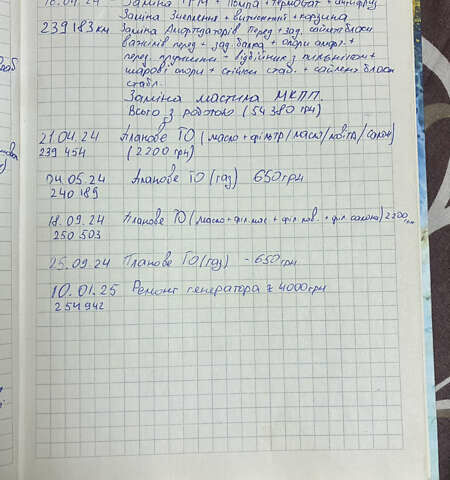 16.04.24 Заміна ГРМ + помпа + термостат + антифриз
Заміна Зчеплення + витискний + корзина
239183 км Заміна Амортизаторів перед + зад. сайлентблоки
важелів перед + зад. балка + опори аморт. +
перед. пружини + відбійник з пильником +
шарові опори + стійки стаб. + сайлент блоки
стабл.
Заміна мастила МКПП.
Всього з роботою (54380 грн)
21.04.24 Планове ТО (масло + фільтр/масло/повітр/салон)
239 454 (2200 грн)
24.05.24 Планове ТО (газ) 650 грн
240 189
18.09.24 Планове ТО (масло + філ. мас + філ. пов. + філ салона) 2200 грн
250 503
25.09.24 Планове ТО (газ) - 650 грн
10.01.25 Ремонт генератора 4000 грн
254 942